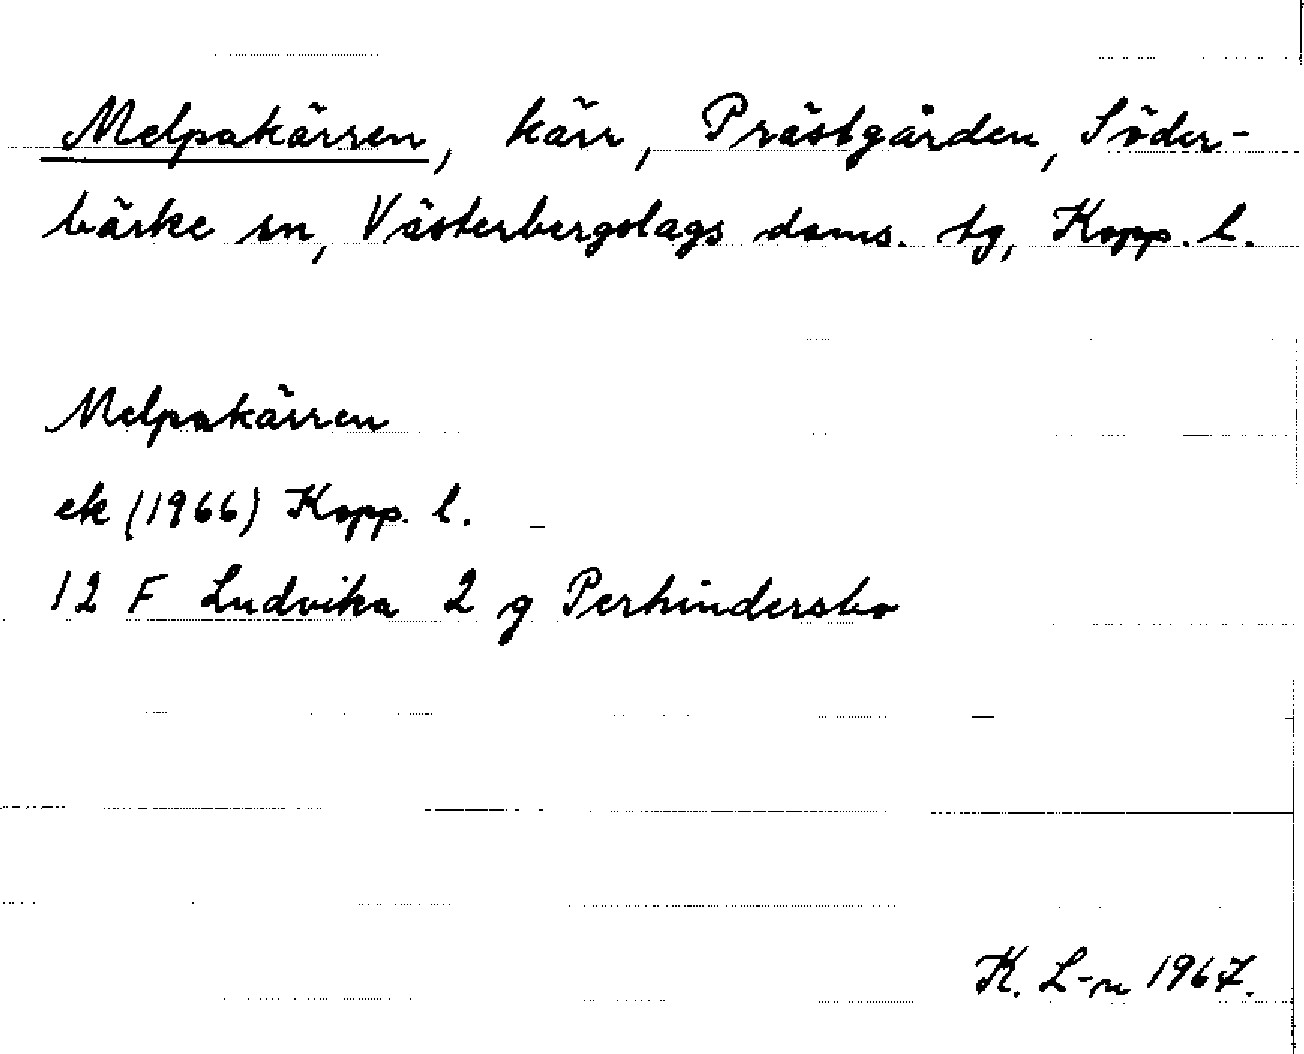 Melpakärren, kärr, Prästgården, Söder-
bärke sn, Västerbergslags doms. tg, Kopp. l.
Melpakärren
ek (1966) Kopp. l.
12 F Ludvika 2 g Perhindersbo
K. L-n 1967.